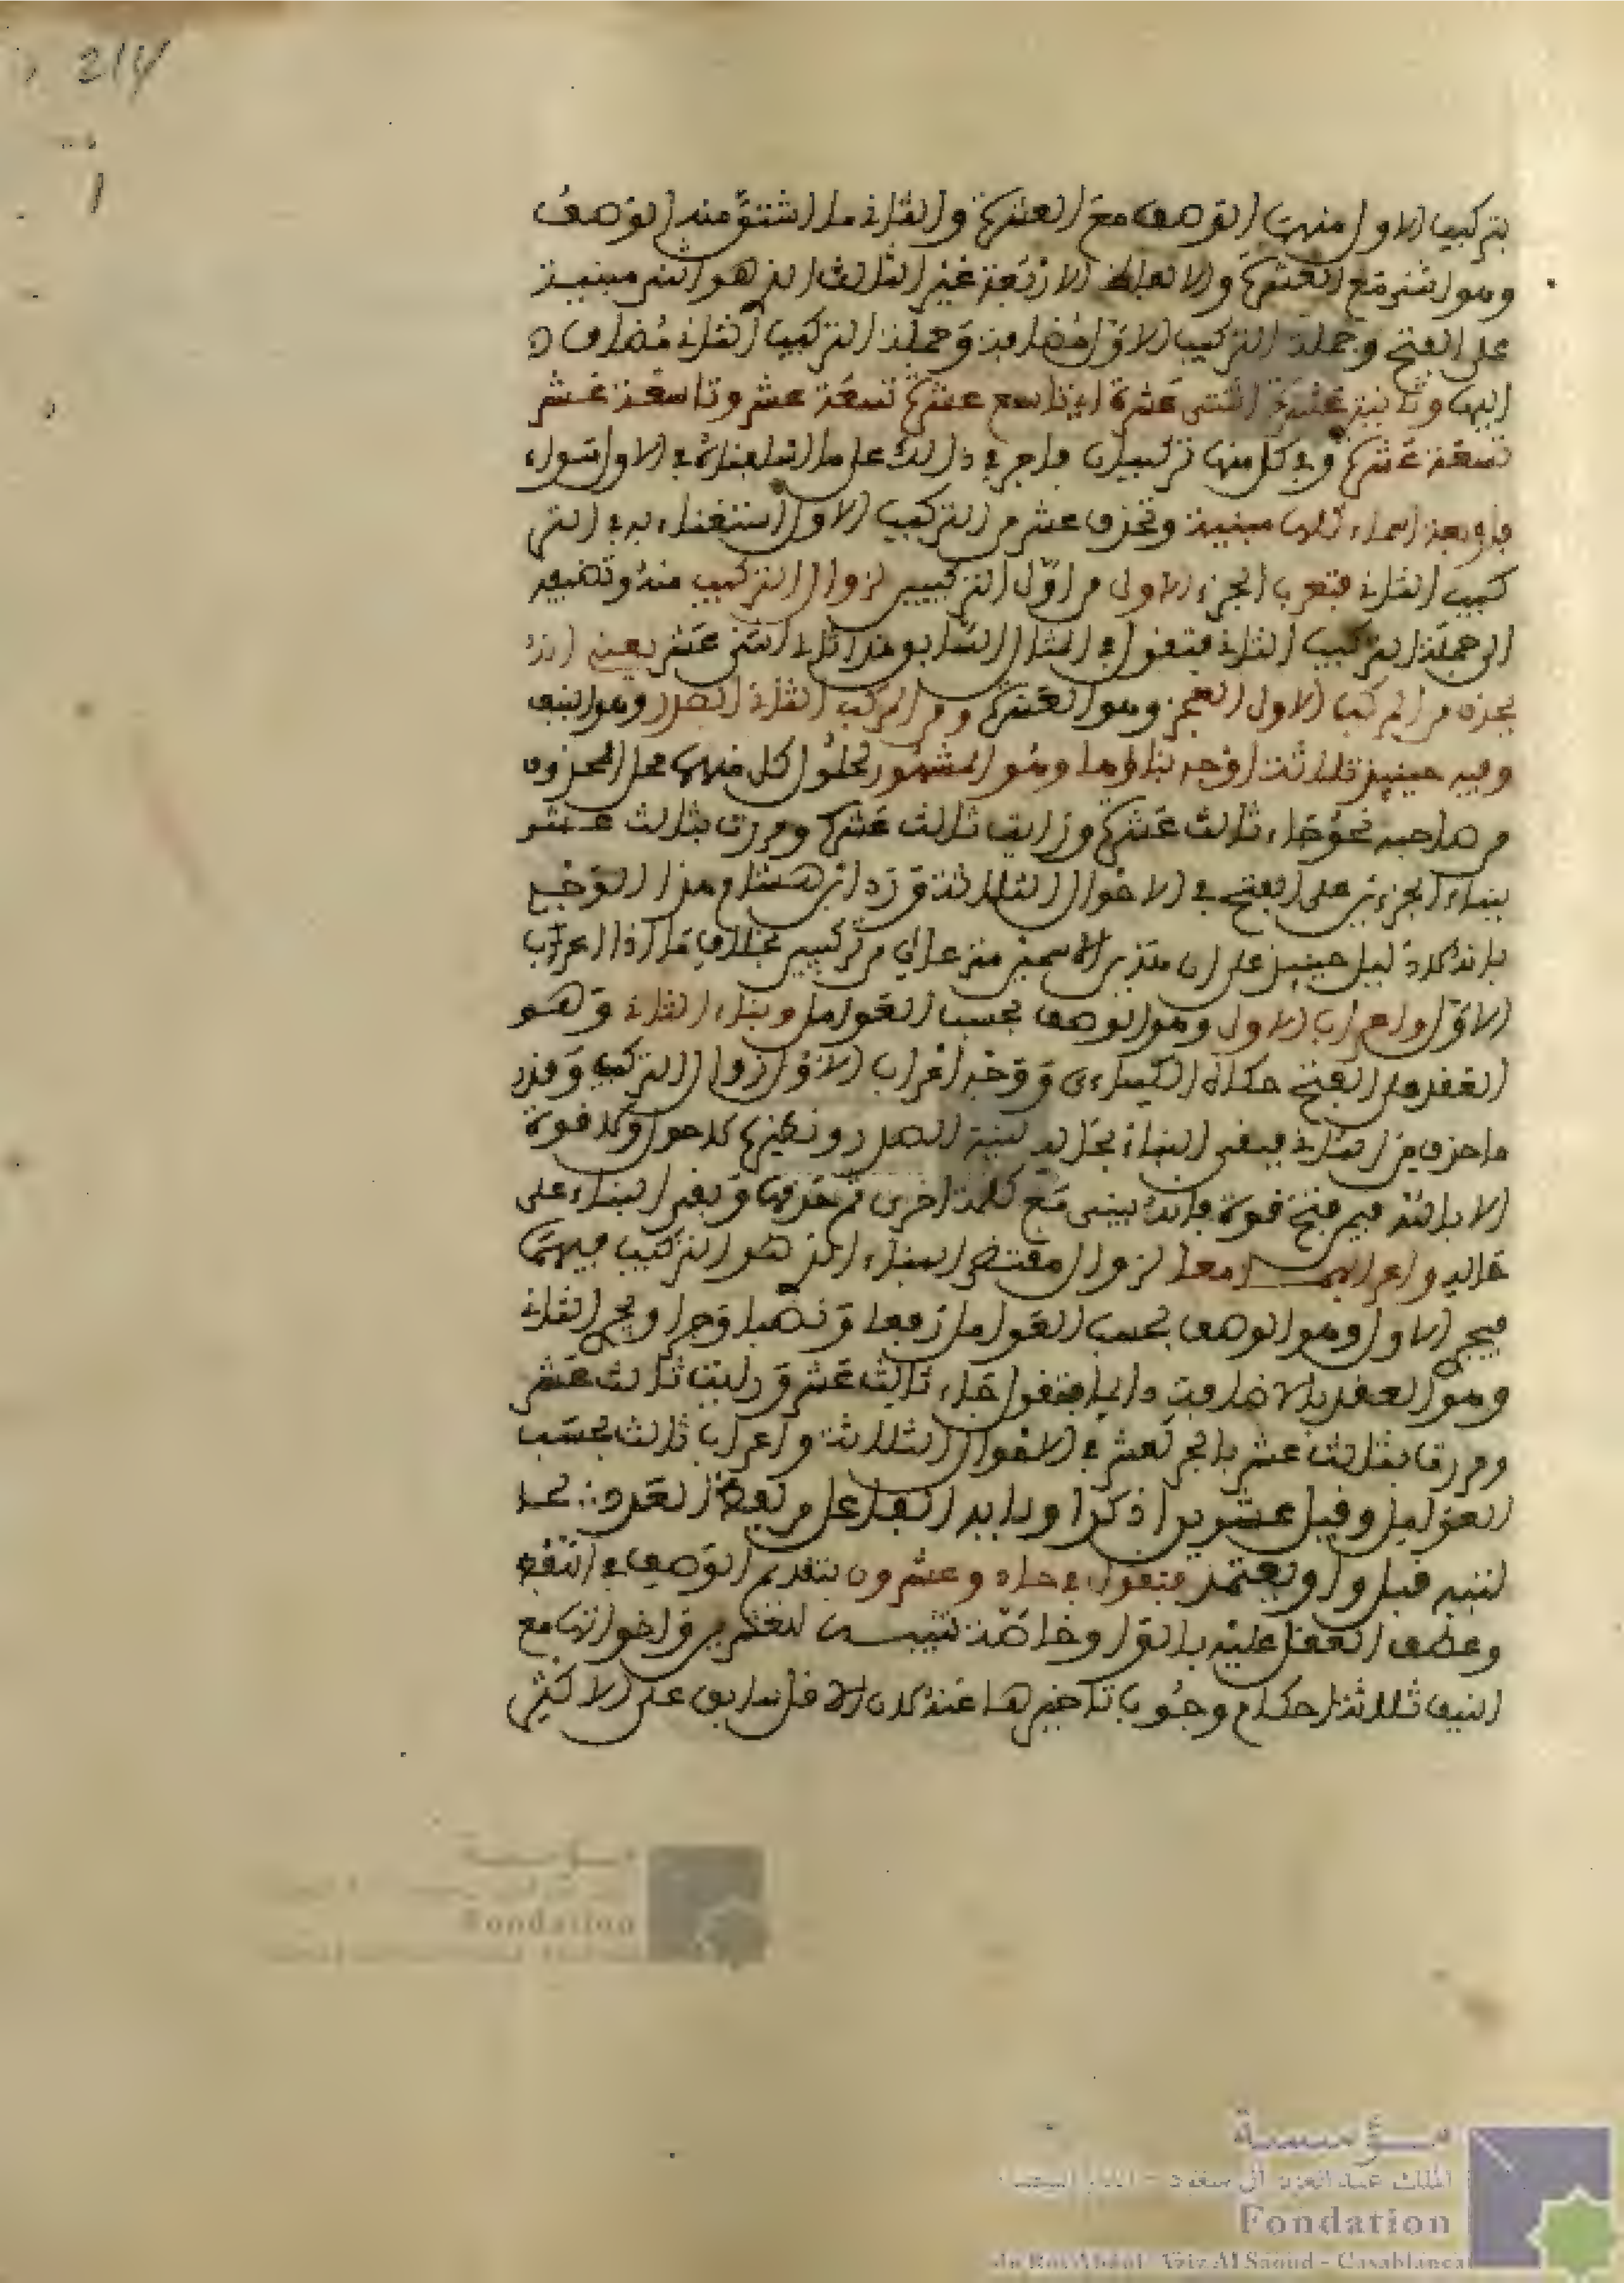 214
بتركيب الاول منهما الوصف مع العشرة والثاني ما اشتق منه الوصف
وهو اثنى مع العشرة والالفاظ الاربعة غير الثالث الذي هو اثنى مبنية
على الفتح وجملة التركيب الاول مضافة وجملة التركيب الثاني مضاف
اليها وثانية عشرة اثنتى عشرة الى تاسع عشر تسعة عشر وتاسعة عشر
تسعة عشرة وفي كل منها تركيبان فاجر في ذلك على ما اسلفناه في الاول سواء
فاربعة اسماء كلها مبنية وتحذف عشر من التركيب الاول استغناء به في التر
كيب الثاني فتعرب الجزء الاول من اول التركيبين لزوال التركيب منه وتضيفه
الى جملة التركيب الثاني فتقول في المثال السابق هذا ثاني اثنى عشر يعني انه
يحذف من المركب الاول العجز وهو العشرة ومن المركب الثاني الصدر وهو النيف
وفيه حينئذ ثلاثة اوجه بناؤهما وهو المشهور لحلول كل منهما محل المحذوف
من صاحبه نحو جاء ثالث عشر ورايت ثالث عشر ومررت بثالث عشر
ببناء الجزءين على الفتح في الاحوال الثلاثة ورد ابن هشام هذا الوجه
بانه لا دليل حينئذ على ان هذين الاسمين منتزعان من تركيبين بخلاف ما اذا اعرب
الاول واعراب الاول وهو الوصف بحسب العوامل وبناء الثاني وهو
العقد على الفتح حكاه الكسائي ووجه اعراب الاول زوال التركيب وقدر
ما حذف من الثاني فبقي البناء بحاله لنية الصدر ونظيره لا حول ولا قوة
الا بالله فيمن فتح قوة فانه بينى مع كلمة اخرى ثم حذفها وبقي البناء على
حاله واعرابهما معا لزوال مقتضى البناء الذي هو التركيب فيهما
فيجر الاول وهو الوصف بحسب العوامل رفعا ونصبا وجرا ويجر الثاني
وهو العقد بالاضافة دائما فتقول جاء ثالث عشر ورايت ثالث عشر
ومررت بثالث عشر بالجر لعشر في الاحوال الثلاثة واعراب ثالث بحسب
العوامل وقبل عشرين اذكرا وبابه الفاعل من لفظ العدد بحا
لتيه قبل واو يعتمد فتقول في حاد وعشرون بتقديم الوصف في اللفظ
وعطف العقد عليه بالواو خاصة تنبيه للعشرين واخواتها مع
النيف ثلاثة احكام وجوب تاخيرها عنه لان الاقل سابق على الاكثر
مؤسسة
الملك عبد العزيز آل سعود - الدار البيضاء
Fondation
du Roi Abdul-Aziz Al Saoud - Casablanca